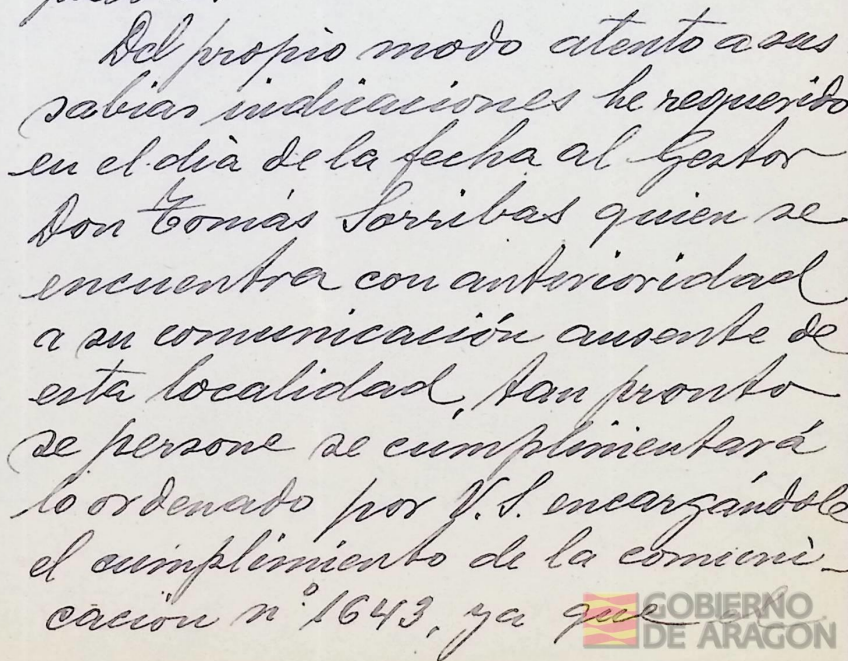 Del propio modo atento a sus
sabias indicaciones he requerido
en el dia de la fecha al Gestor
Don Tomás Sorribas quien se
encuentra con anterioridad
a su comunicación ausente de
esta localidad, tan pronto
se persone se cumplimentará
lo ordenado por V.S. encargándole
el cumplimiento de la comuni-
cación n.º 1643, ya que el
GOBIERNO
DE ARAGON